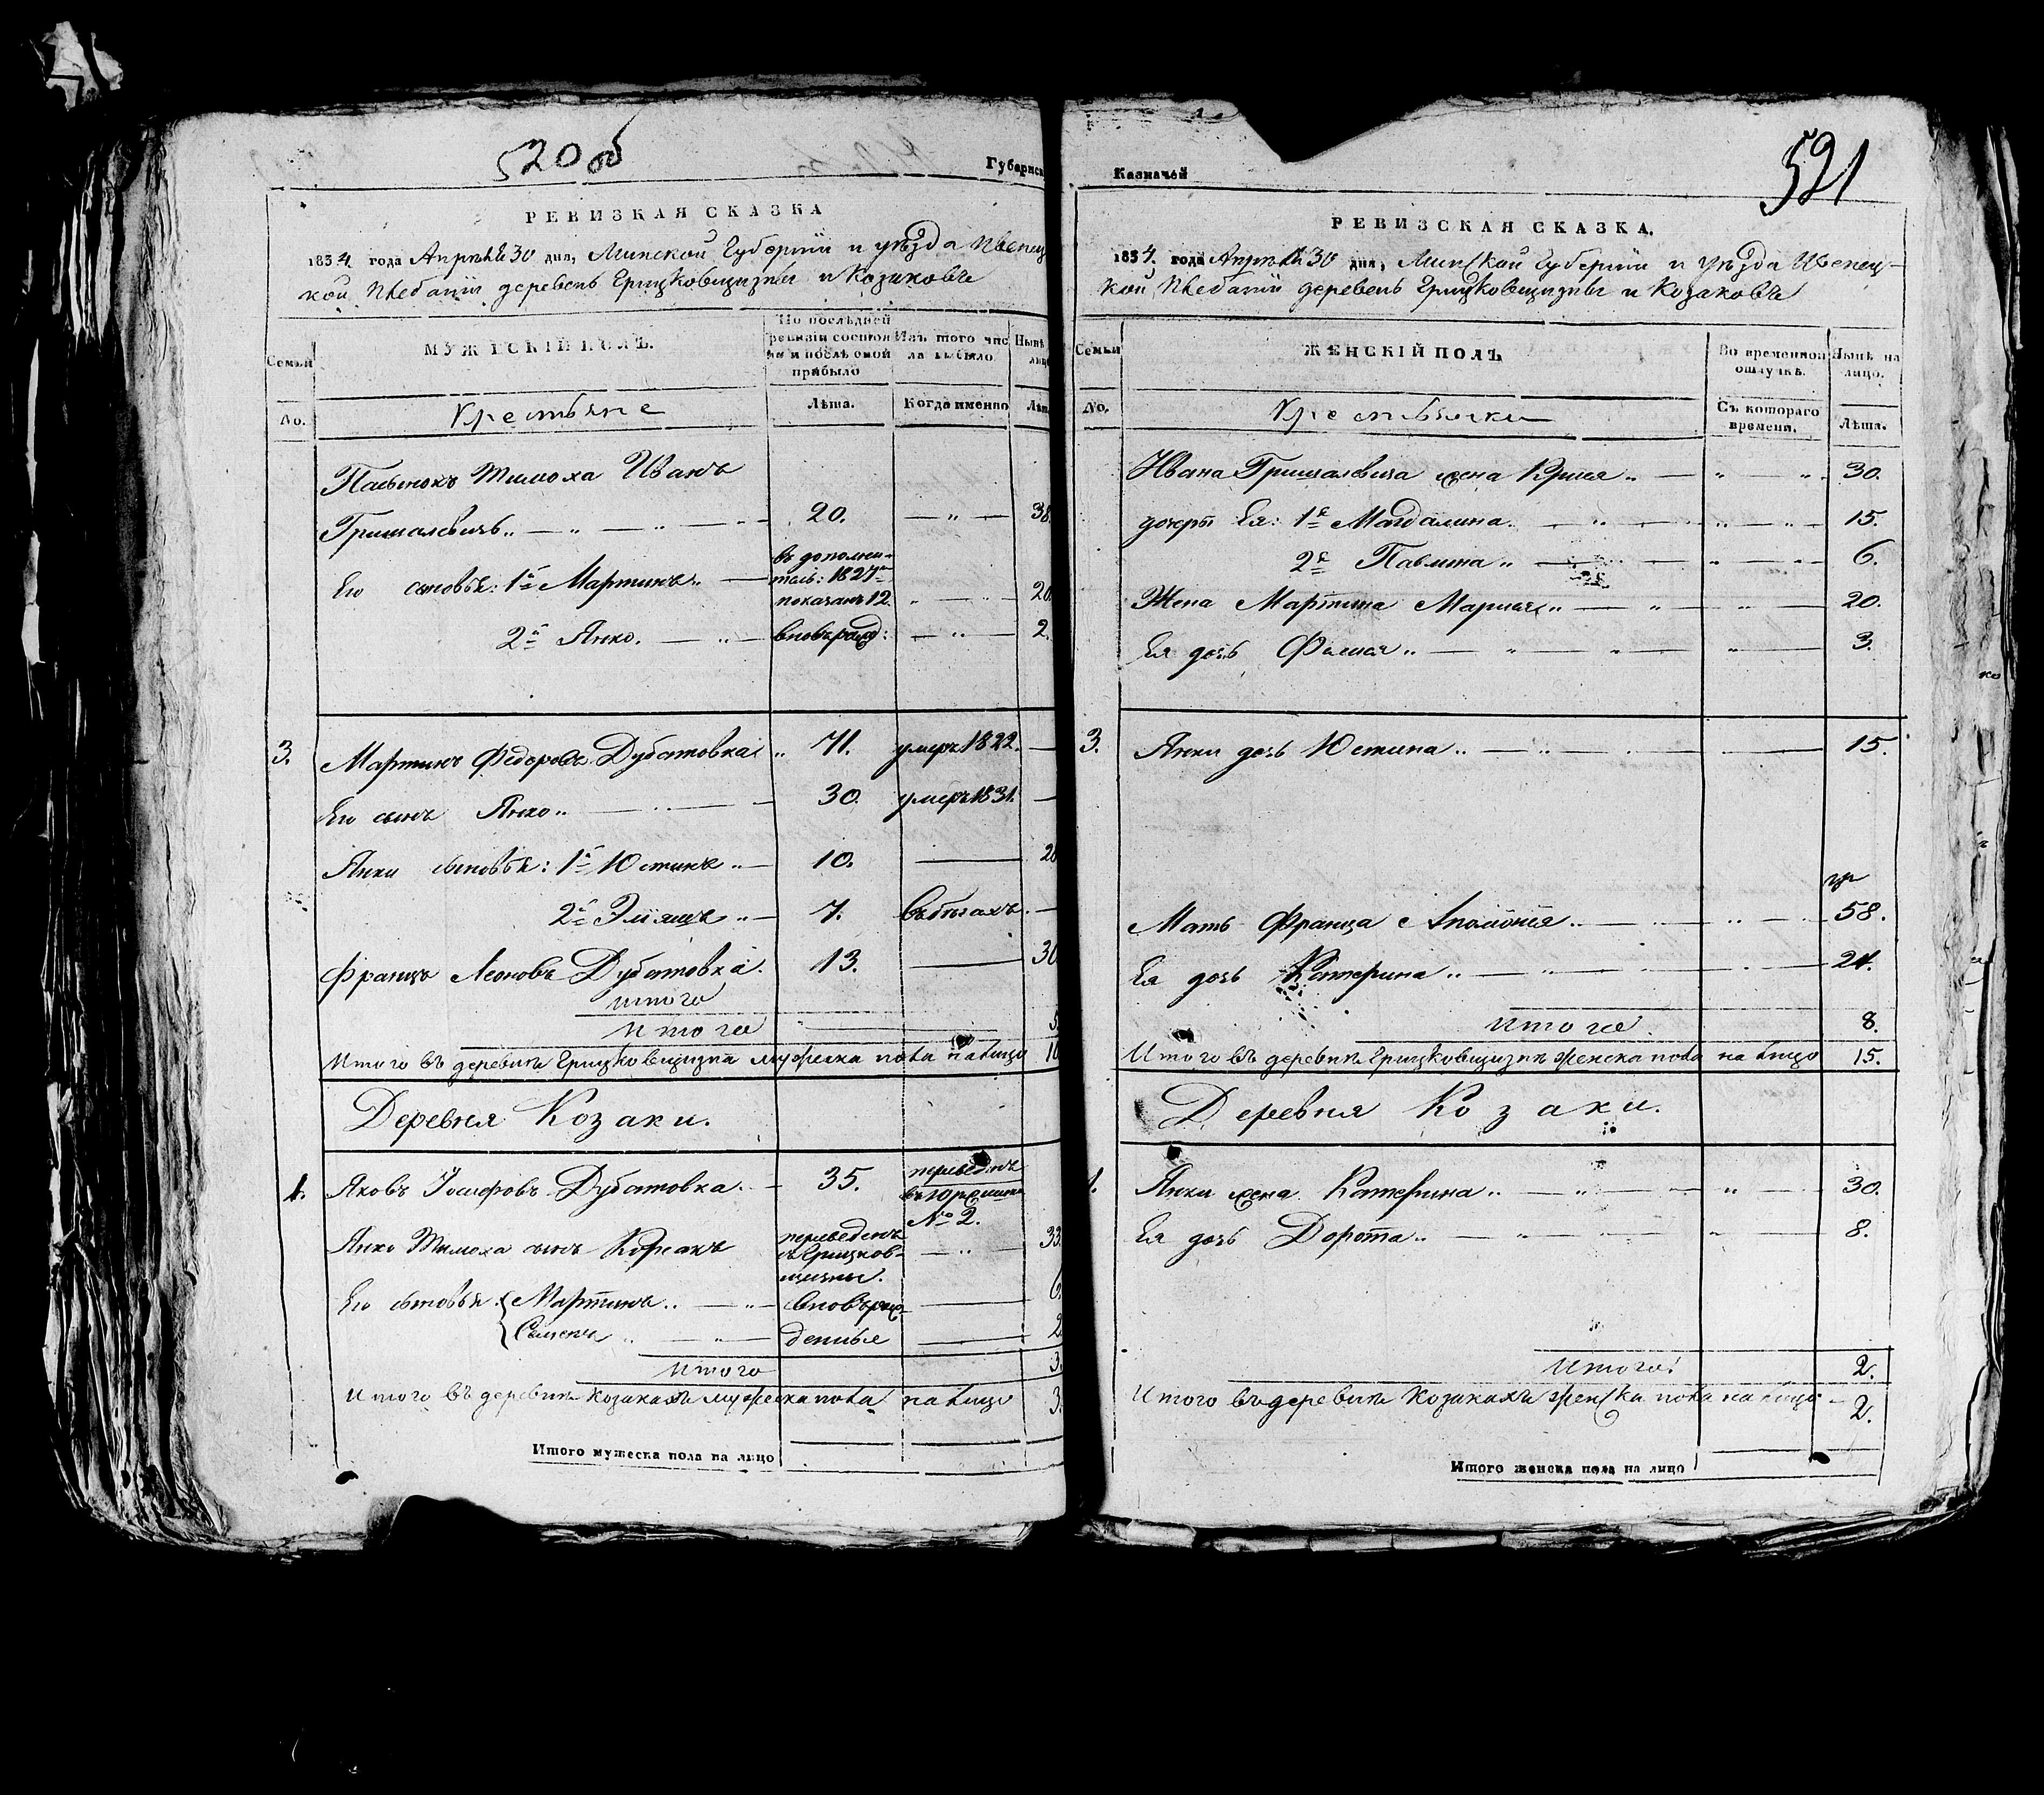 520 об
Губернск
РЕВИЗКАЯ СКАЗКА
1834 года Апрѣля 30 дня, Минской Губерніи и уѣзда Ивенец
кой Плебаніи деревень Грицковщизны и Козаковъ
Семьи
МУЖЕСКІЙ ПОЛЪ.
По послѣдней ревизіи состоя
ло и послѣ оной прибыло
Изъ того чис
ла выбыло.
Нынѣ
лицо
No.
Крестьяне
Лѣта.
Когда именно
Лѣт
Пасынокъ Тимоха Иванъ
Гришалевичь 20. 38.
Его сыновья: 1й Мартинъ въ дополни-
тель: 1827го
показанъ 12. 20.
2й Янко. вновь рожд: 2.
3. Мартинъ Федоровъ Дубатовка 71. умеръ 1822.
Его сынъ Янко 30. умеръ 1831.
Янки сыновья: 1й Юстинъ 10. 26
2й Эліяшъ 7. въ бѣгахъ.
Францъ Леоновъ Дубатовка. 13. 30
Итого
Итого 5
Итого въ деревни Грицковщизна мужеска пола на лицо 10
Деревня Козаки.
1. Яковъ Іосифовъ Дубатовка 35. переведенъ
№ 2.
Янко Тимоха сынъ Корсакъ переведенъ
съ Грицков-
щизны. 33.
Его сыновья { Мартинъ вновьрож- 6.
Семенъ денные 2
Итого 3.
Итого въ деревни Козакахъ мужеска пола на лицо 3.
Итого мужеска пола на лицо
Казначей
521
РЕВИЗСКАЯ СКАЗКА.
1834. года Апрѣля 30 дня, Минской Губерніи и Уѣзда Ивенец-
кой Плебаніи деревень Грицковщизны и Козаковъ
Семьи
ЖЕНСКІЙ ПОЛЪ
Во временной
отлучкѣ.
Нынѣ на
лицо.
No.
Крестьянки
Съ котораго
времени.
Лѣта.
Ивана Гришалевича жена 30.
дочери Ея: 1я Магдалина 15.
2я Павлина 6.
Жена Мартина Марьяна 20.
Ея дочь 3.
3. Янки дочь Юстина 15.
Мать Франца Аполонія 58.
Ея дочь Катерина 24.
Итого. 8.
Итого въ деревни Грицковщизнѣ женска пола на лицо 15.
Деревня Козаки.
1. Янки жена Катерина 30.
Ея дочь Дорота 8.
Итого 2.
Итого въ деревни Козакахъ женска пола на лицо 2.
Итого женска пола на лицо